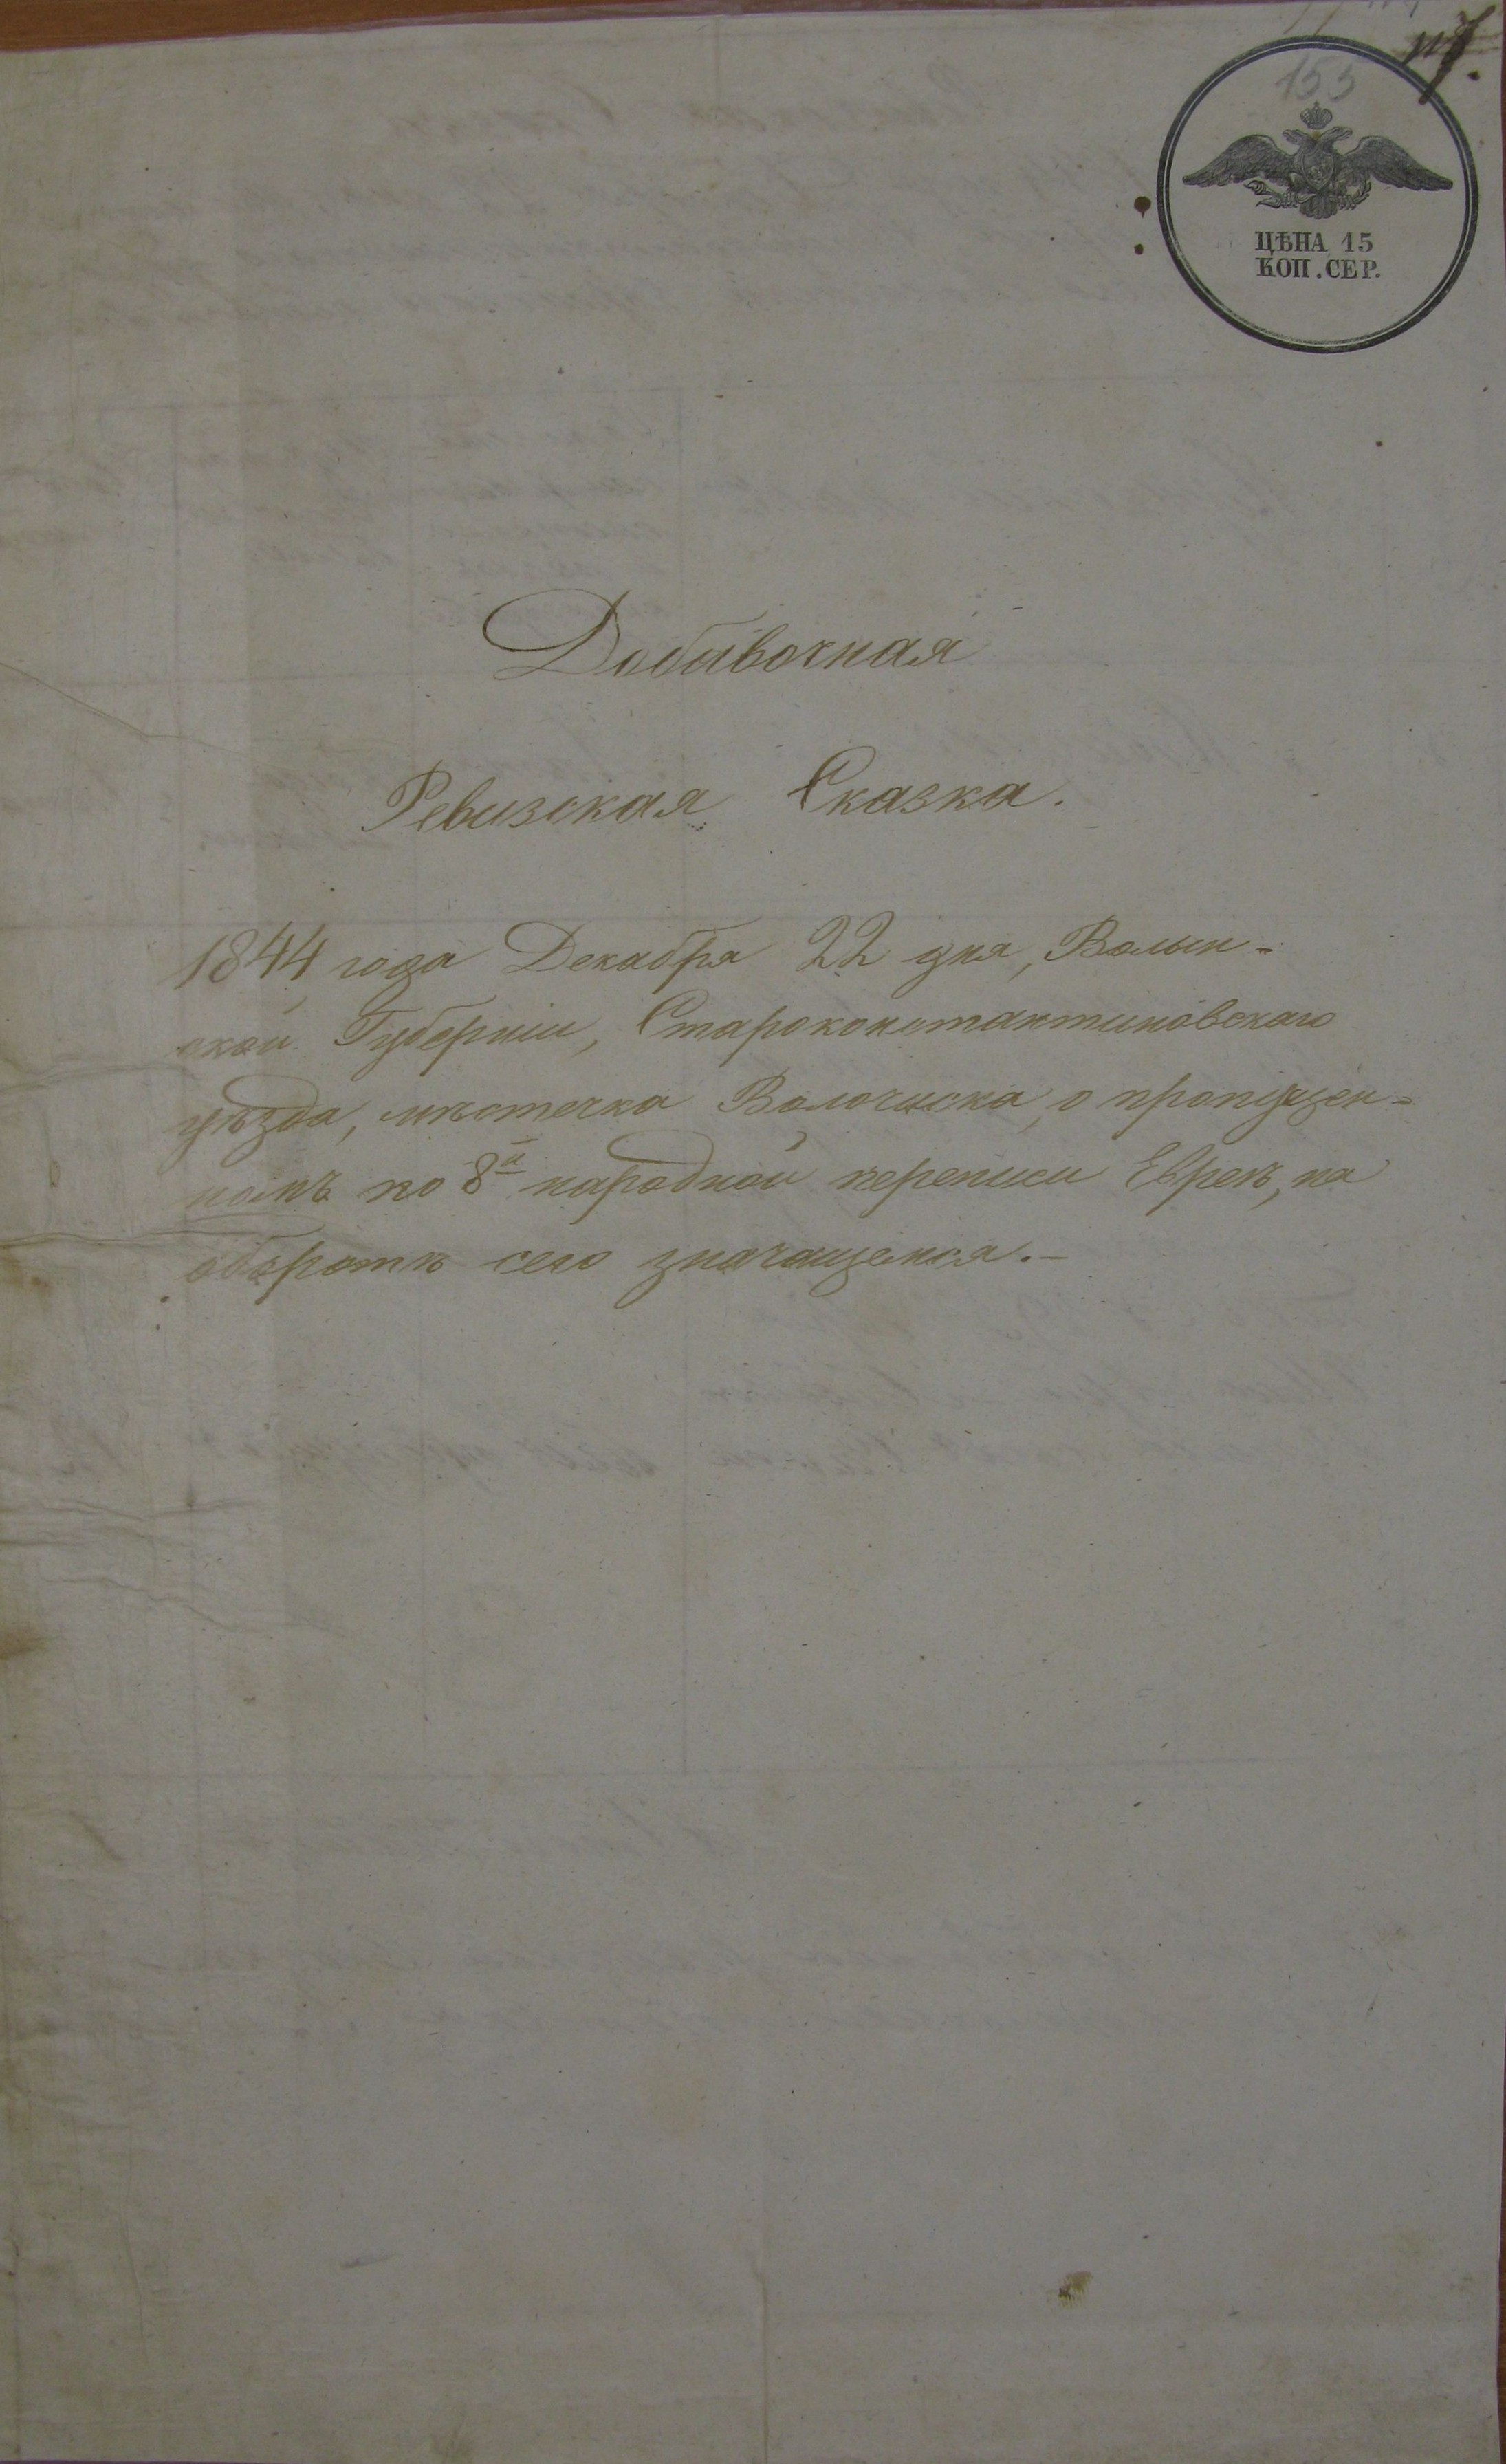 155
ЦѢНА 15
КОП. СЕР.
Добавочная
Ревизская Сказка.
1844 года Декабря 22 дня, Волын-
ской Губерніи, Староконстантиновскаго
уѣзда, мѣстечка Волочиска, о пропущен-
номъ по 8й народной переписи Евреѣ, на
оборотѣ сего значащемся.-